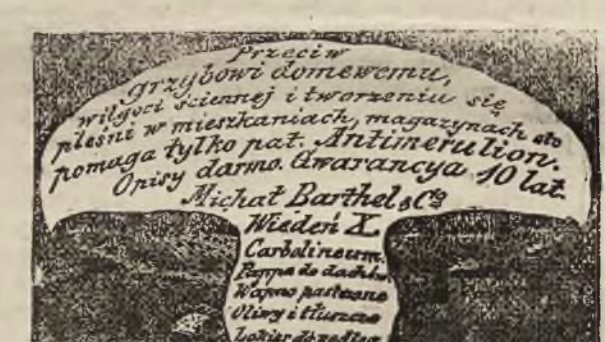 Przeciw
grzybowi domowemu,
wilgoci ściennej i tworzeniu się
pleśni w mieszkaniach, magazynach etc
pomaga tylko pat. Antimerulion.
Opisy darmo. Gwarancya 10 lat.
Michał Barthel & Co
Wiedeń X.
Carbolineum.
Pappa do dachów.
Wapno pastewne
Oliwy i tłuszcze